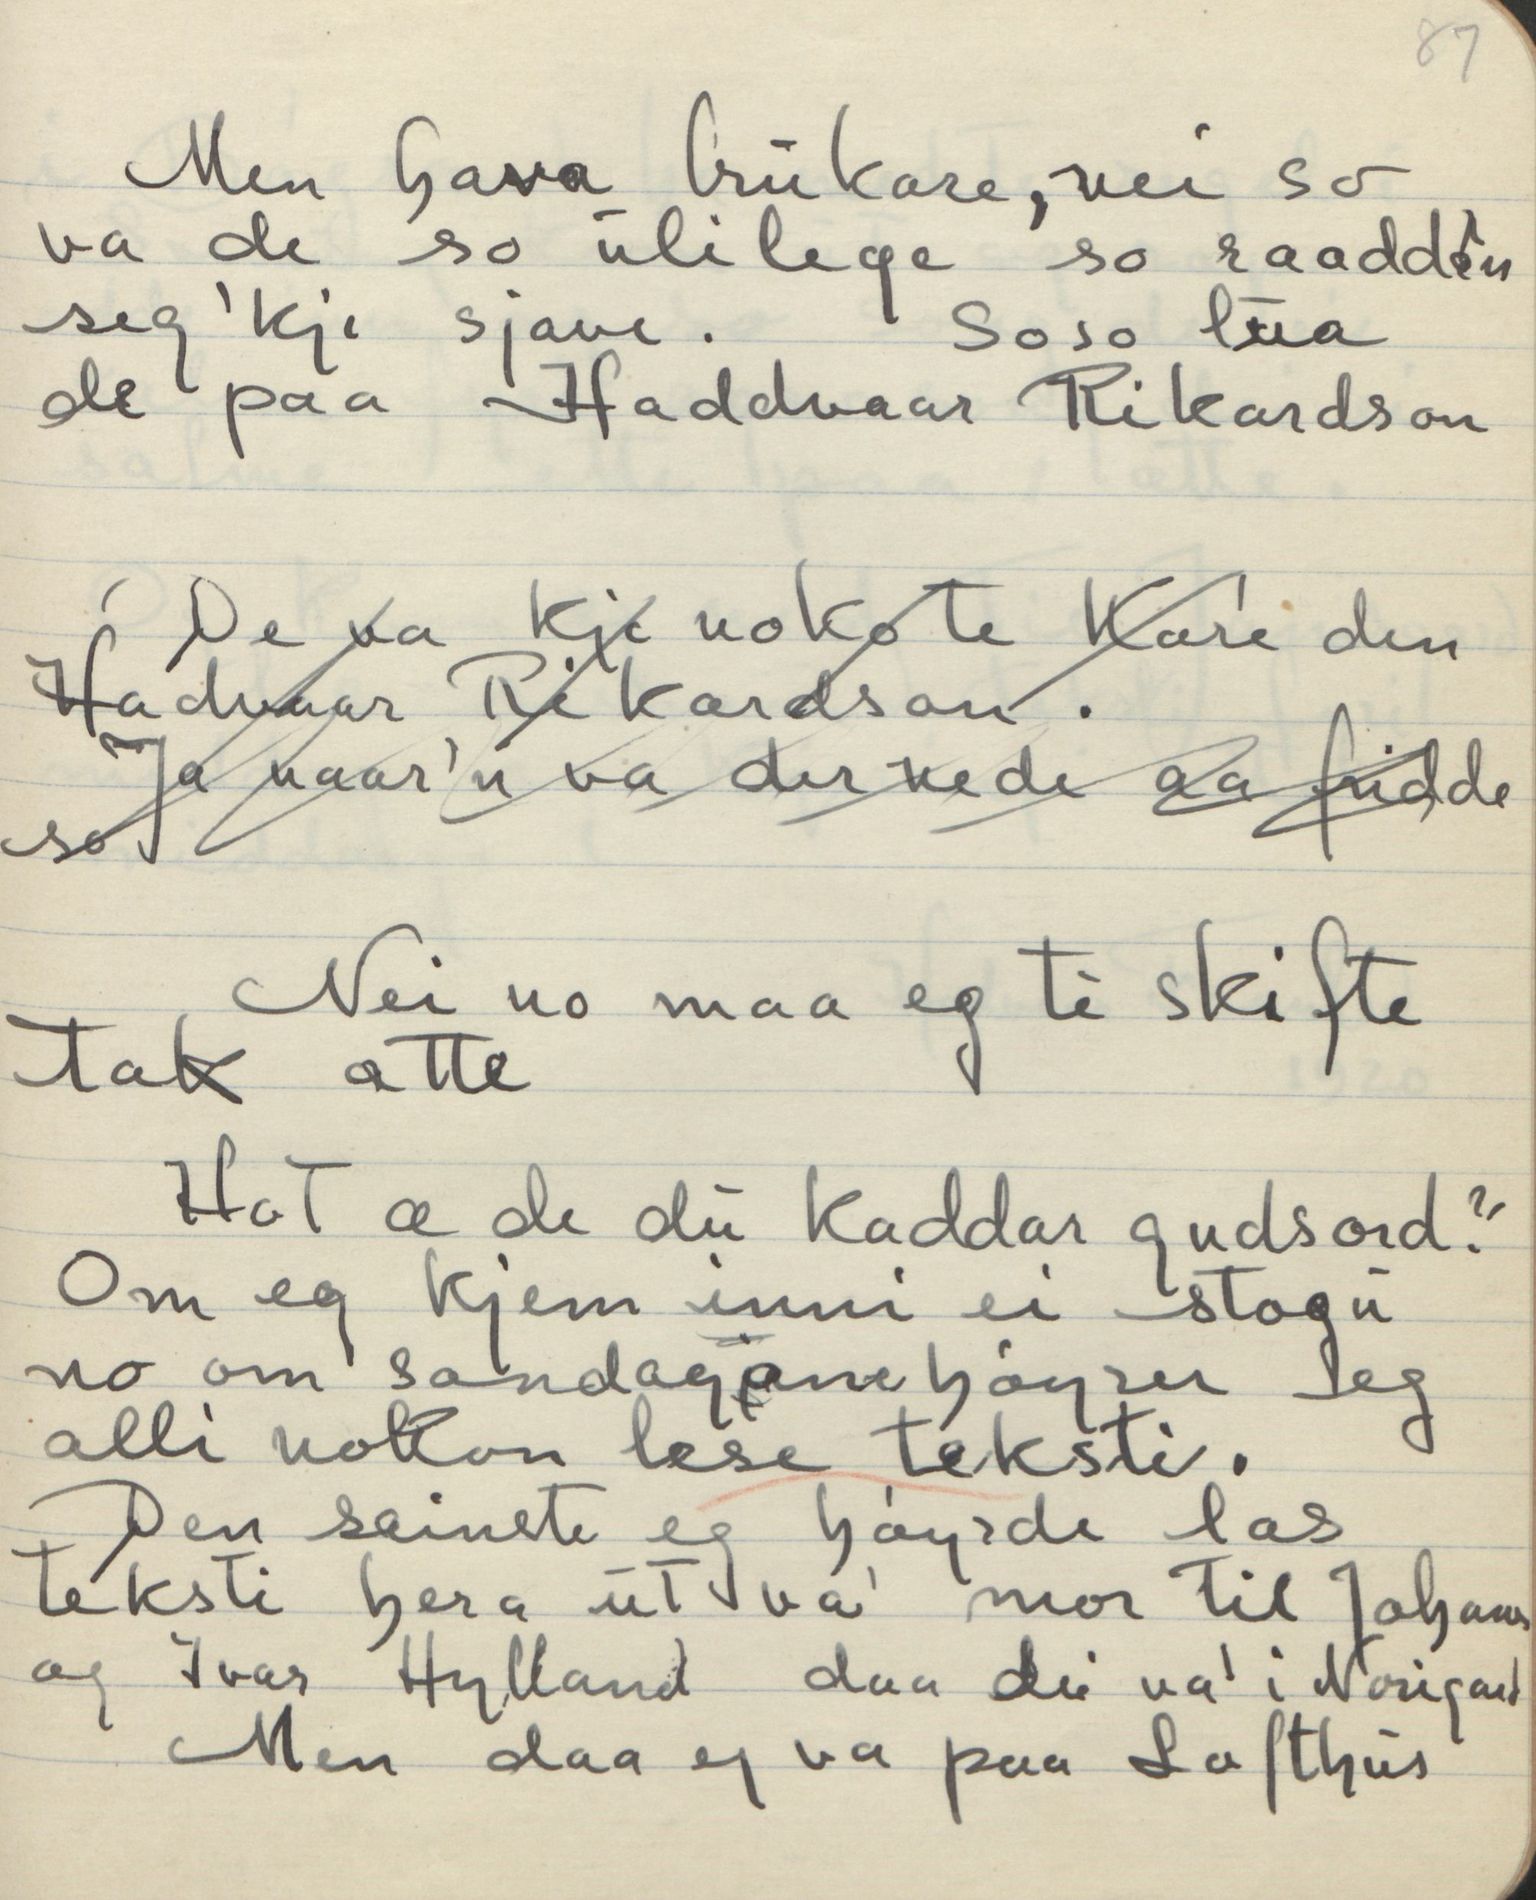 87
Men hava brükare, nei so
va de so ülilege so raaddèn
seg 'kje sjave. Soso lüa
de paa Haddvaar Rikardson
De va kje noko te Kare den
Hadvaar Rikardson.
Ja naar'n va der nede aa fridde
so
Nei no maa eg te skifte
tak atte
Hot æ de dü kaddar gudsord?
Om eg kjem inni ei stogü
no om sondagane høyrer eg
alli nokon lese teksti.
Den seinste eg høyrde las
teksti hera üt va' mor til Johannes
og Ivar Hylland daa dei va' i Norigard
Men daa eg va paa Lofthüs